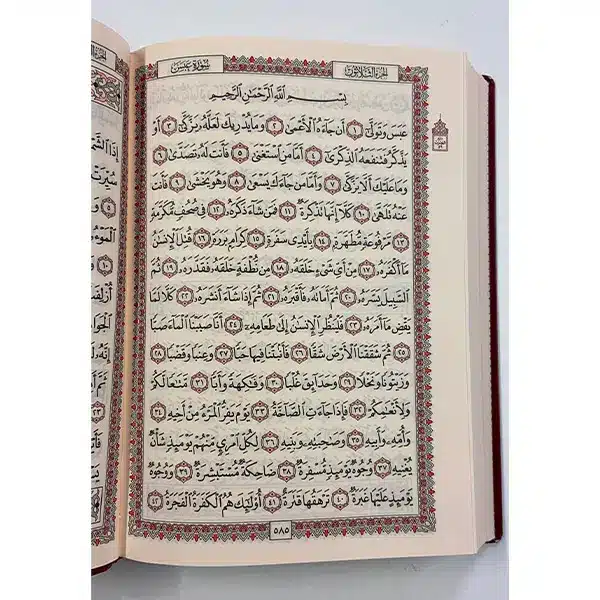 الجزء الثلاثون
سُورَةُ عَبَسَ
بِسْمِ ٱللَّهِ ٱلرَّحْمَٰنِ ٱلرَّحِيمِ
عَبَسَ وَتَوَلَّىٰٓ ١ أَن جَآءَهُ ٱلْأَعْمَىٰ ٢ وَمَا يُدْرِيكَ لَعَلَّهُۥ يَزَّكَّىٰٓ ٣ أَوْ
يَذَّكَّرُ فَتَنفَعَهُ ٱلذِّكْرَىٰٓ ٤ أَمَّا مَنِ ٱسْتَغْنَىٰ ٥ فَأَنتَ لَهُۥ تَصَدَّىٰ ٦
وَمَا عَلَيْكَ أَلَّا يَزَّكَّىٰ ٧ وَأَمَّا مَن جَآءَكَ يَسْعَىٰ ٨ وَهُوَ يَخْشَىٰ ٩ فَأَنتَ
عَنْهُ تَلَهَّىٰ ١٠ كَلَّآ إِنَّهَا تَذْكِرَةٌ ١١ فَمَن شَآءَ ذَكَرَهُۥ ١٢ فِى صُحُفٍ مُّكَرَّمَةٍ
١٣ مَّرْفُوعَةٍ مُّطَهَّرَةٍۭ ١٤ بِأَيْدِى سَفَرَةٍ ١٥ كِرَامٍۭ بَرَرَةٍ ١٦ قُتِلَ ٱلْإِنسَٰنُ
مَآ أَكْفَرَهُۥ ١٧ مِنْ أَىِّ شَىْءٍ خَلَقَهُۥ ١٨ مِن نُّطْفَةٍ خَلَقَهُۥ فَقَدَّرَهُۥ ١٩ ثُمَّ
ٱلسَّبِيلَ يَسَّرَهُۥ ٢٠ ثُمَّ أَمَاتَهُۥ فَأَقْبَرَهُۥ ٢١ ثُمَّ إِذَا شَآءَ أَنشَرَهُۥ ٢٢ كَلَّا لَمَّا
يَقْضِ مَآ أَمَرَهُۥ ٢٣ فَلْيَنظُرِ ٱلْإِنسَٰنُ إِلَىٰ طَعَامِهِۦٓ ٢٤ أَنَّا صَبَبْنَا ٱلْمَآءَ صَبًّا
٢٥ ثُمَّ شَقَقْنَا ٱلْأَرْضَ شَقًّا ٢٦ فَأَنۢبَتْنَا فِيهَا حَبًّا ٢٧ وَعِنَبًا وَقَضْبًا ٢٨
وَزَيْتُونًا وَنَخْلًا ٢٩ وَحَدَآئِقَ غُلْبًا ٣٠ وَفَٰكِهَةً وَأَبًّا ٣١ مَّتَٰعًا لَّكُمْ
وَلِأَنْعَٰمِكُمْ ٣٢ فَإِذَا جَآءَتِ ٱلصَّآخَّةُ ٣٣ يَوْمَ يَفِرُّ ٱلْمَرْءُ مِنْ أَخِيهِ ٣٤
وَأُمِّهِۦ وَأَبِيهِ ٣٥ وَصَٰحِبَتِهِۦ وَبَنِيهِ ٣٦ لِكُلِّ ٱمْرِئٍ مِّنْهُمْ يَوْمَئِذٍ شَأْنٌ
يُغْنِيهِ ٣٧ وُجُوهٌ يَوْمَئِذٍ مُّسْفِرَةٌ ٣٨ ضَاحِكَةٌ مُّسْتَبْشِرَةٌ ٣٩ وَوُجُوهٌ
يَوْمَئِذٍ عَلَيْهَا غَبَرَةٌ ٤٠ تَرْهَقُهَا قَتَرَةٌ ٤١ أُو۟لَٰٓئِكَ هُمُ ٱلْكَفَرَةُ ٱلْفَجَرَةُ ٤٢
٥٨٥